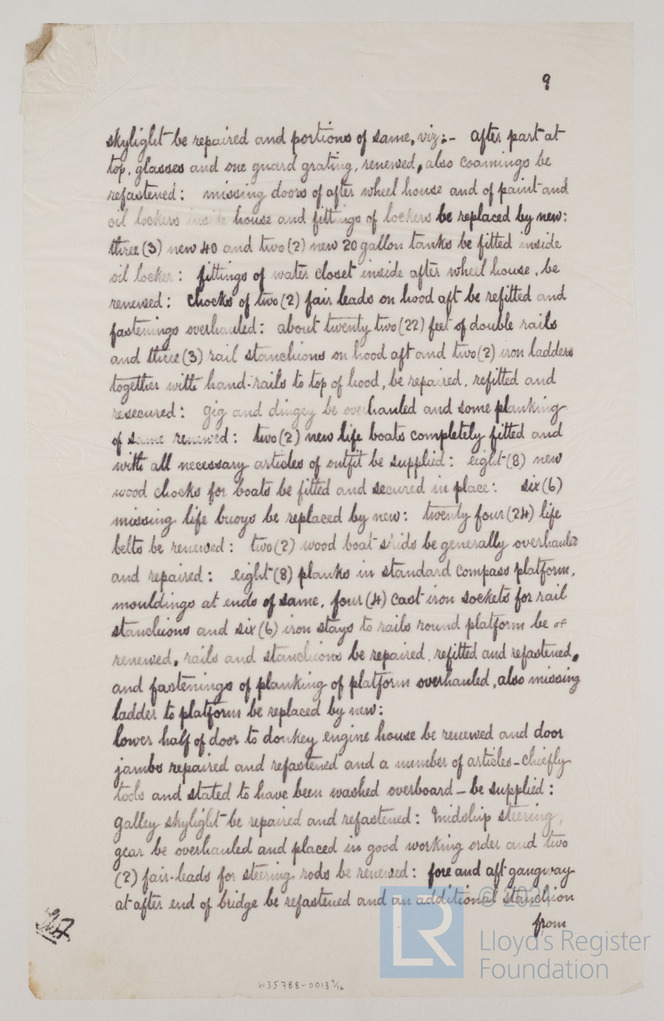 9
skylight be repaired and portions of same, viz:- after part at
top, glasses and one guard grating, renewed, also coamings be
refastened: missing doors of after wheel house and of paint and
oil lockers inside house and fittings of lockers be replaced by new:
three (3) new 40 and two (2) new 20 gallon tanks be fitted inside
oil locker: fittings of water closet inside after wheel house, be
renewed: chocks of two (2) fair leads on hood aft be refitted and
fastenings overhauled: about twenty two (22) feet of double rails
and three (3) rail stanchions on hood aft and two (2) iron ladders
together with hand-rails to top of hood, be repaired, refitted and
resecured: gig and dingey be overhauled and some planking
of same renewed: two (2) new life boats completely fitted and
with all necessary articles of outfit be supplied: eight (8) new
wood chocks for boats be fitted and secured in place: six (6)
missing life buoys be replaced by new: twenty four (24) life
belts be renewed: two (2) wood boat skids be generally overhauled
and repaired: eight (8) planks in standard compass platform,
mouldings at ends of same, four (4) cast iron sockets for rail
stanchions and six (6) iron stays to rails round platform be
renewed, rails and stanchions be repaired, refitted and refastened,
and fastenings of planking of platform overhauled, also missing
ladder to platform be replaced by new:
lower half of door to donkey engine house be renewed and door
jambs repaired and refastened and a number of articles - chiefly
tools and stated to have been washed overboard - be supplied:
galley skylight be repaired and refastened: midship steering
gear be overhauled and placed in good working order and two
(2) fair-leads for steering rods be renewed: fore and aft gangway
at after end of bridge be refastened and an additional stanchion
from
© 202
Lloyd's Register
Foundation
LR
W35788-0013 9/16